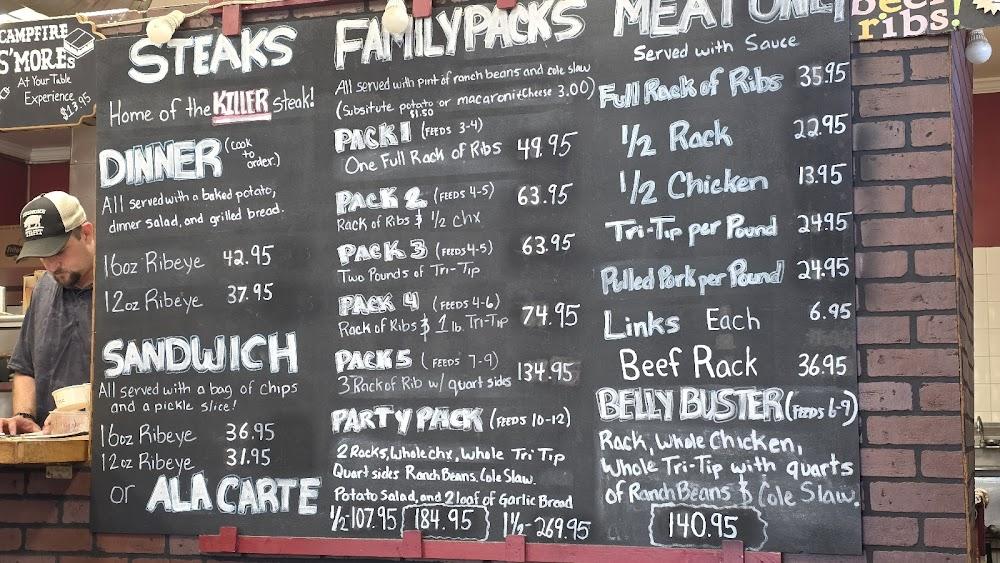 CAMPFIRE
S'MORES
At Your Table
Experience
$13.95
STEAKS
Home of the KILLER steak!
DINNER (cook to order.)
All served with a baked potato,
dinner salad, and grilled bread.
16oz Ribeye 42.95
12oz Ribeye 37.95
SANDWICH
All served with a bag of chips
and a pickle slice!
16oz Ribeye 36.95
12oz Ribeye 31.95
or ALA CARTE
FAMILY PACKS
All served with pint of ranch beans and cole slaw
(Subsitute potato or macaroni & Cheese 3.00)
$1.50
PACK 1 (FEEDS 3-4)
One Full Rack of Ribs 49.95
PACK 2 (FEEDS 4-5)
Rack of Ribs & 1/2 chx 63.95
PACK 3 (FEEDS 4-5)
Two Pounds of Tri-Tip 63.95
PACK 4 (FEEDS 4-6)
Rack of Ribs & 1 lb. Tri-Tip 74.95
PACK 5 (FEEDS 7-9)
3 Rack of Rib w/ quart sides 134.95
PARTY PACK (FEEDS 10-12)
2 Racks, Whole chx, Whole Tri Tip
Quart sides Ranch Beans, Cole Slaw.
Potato Salad, and 2 loaf of Garlic Bread
1/2-107.95 184.95 1 1/2-269.95
MEAT ONLY
Served with Sauce
Full Rack of Ribs 35.95
1/2 Rack 22.95
1/2 Chicken 13.95
Tri-Tip per Pound 24.95
Pulled Pork per Pound 24.95
Links Each 6.95
Beef Rack 36.95
BELLY BUSTER (FEEDS 6-9)
Rack, Whole Chicken,
Whole Tri-Tip with quarts
of Ranch Beans & Cole Slaw.
140.95
beef
ribs!